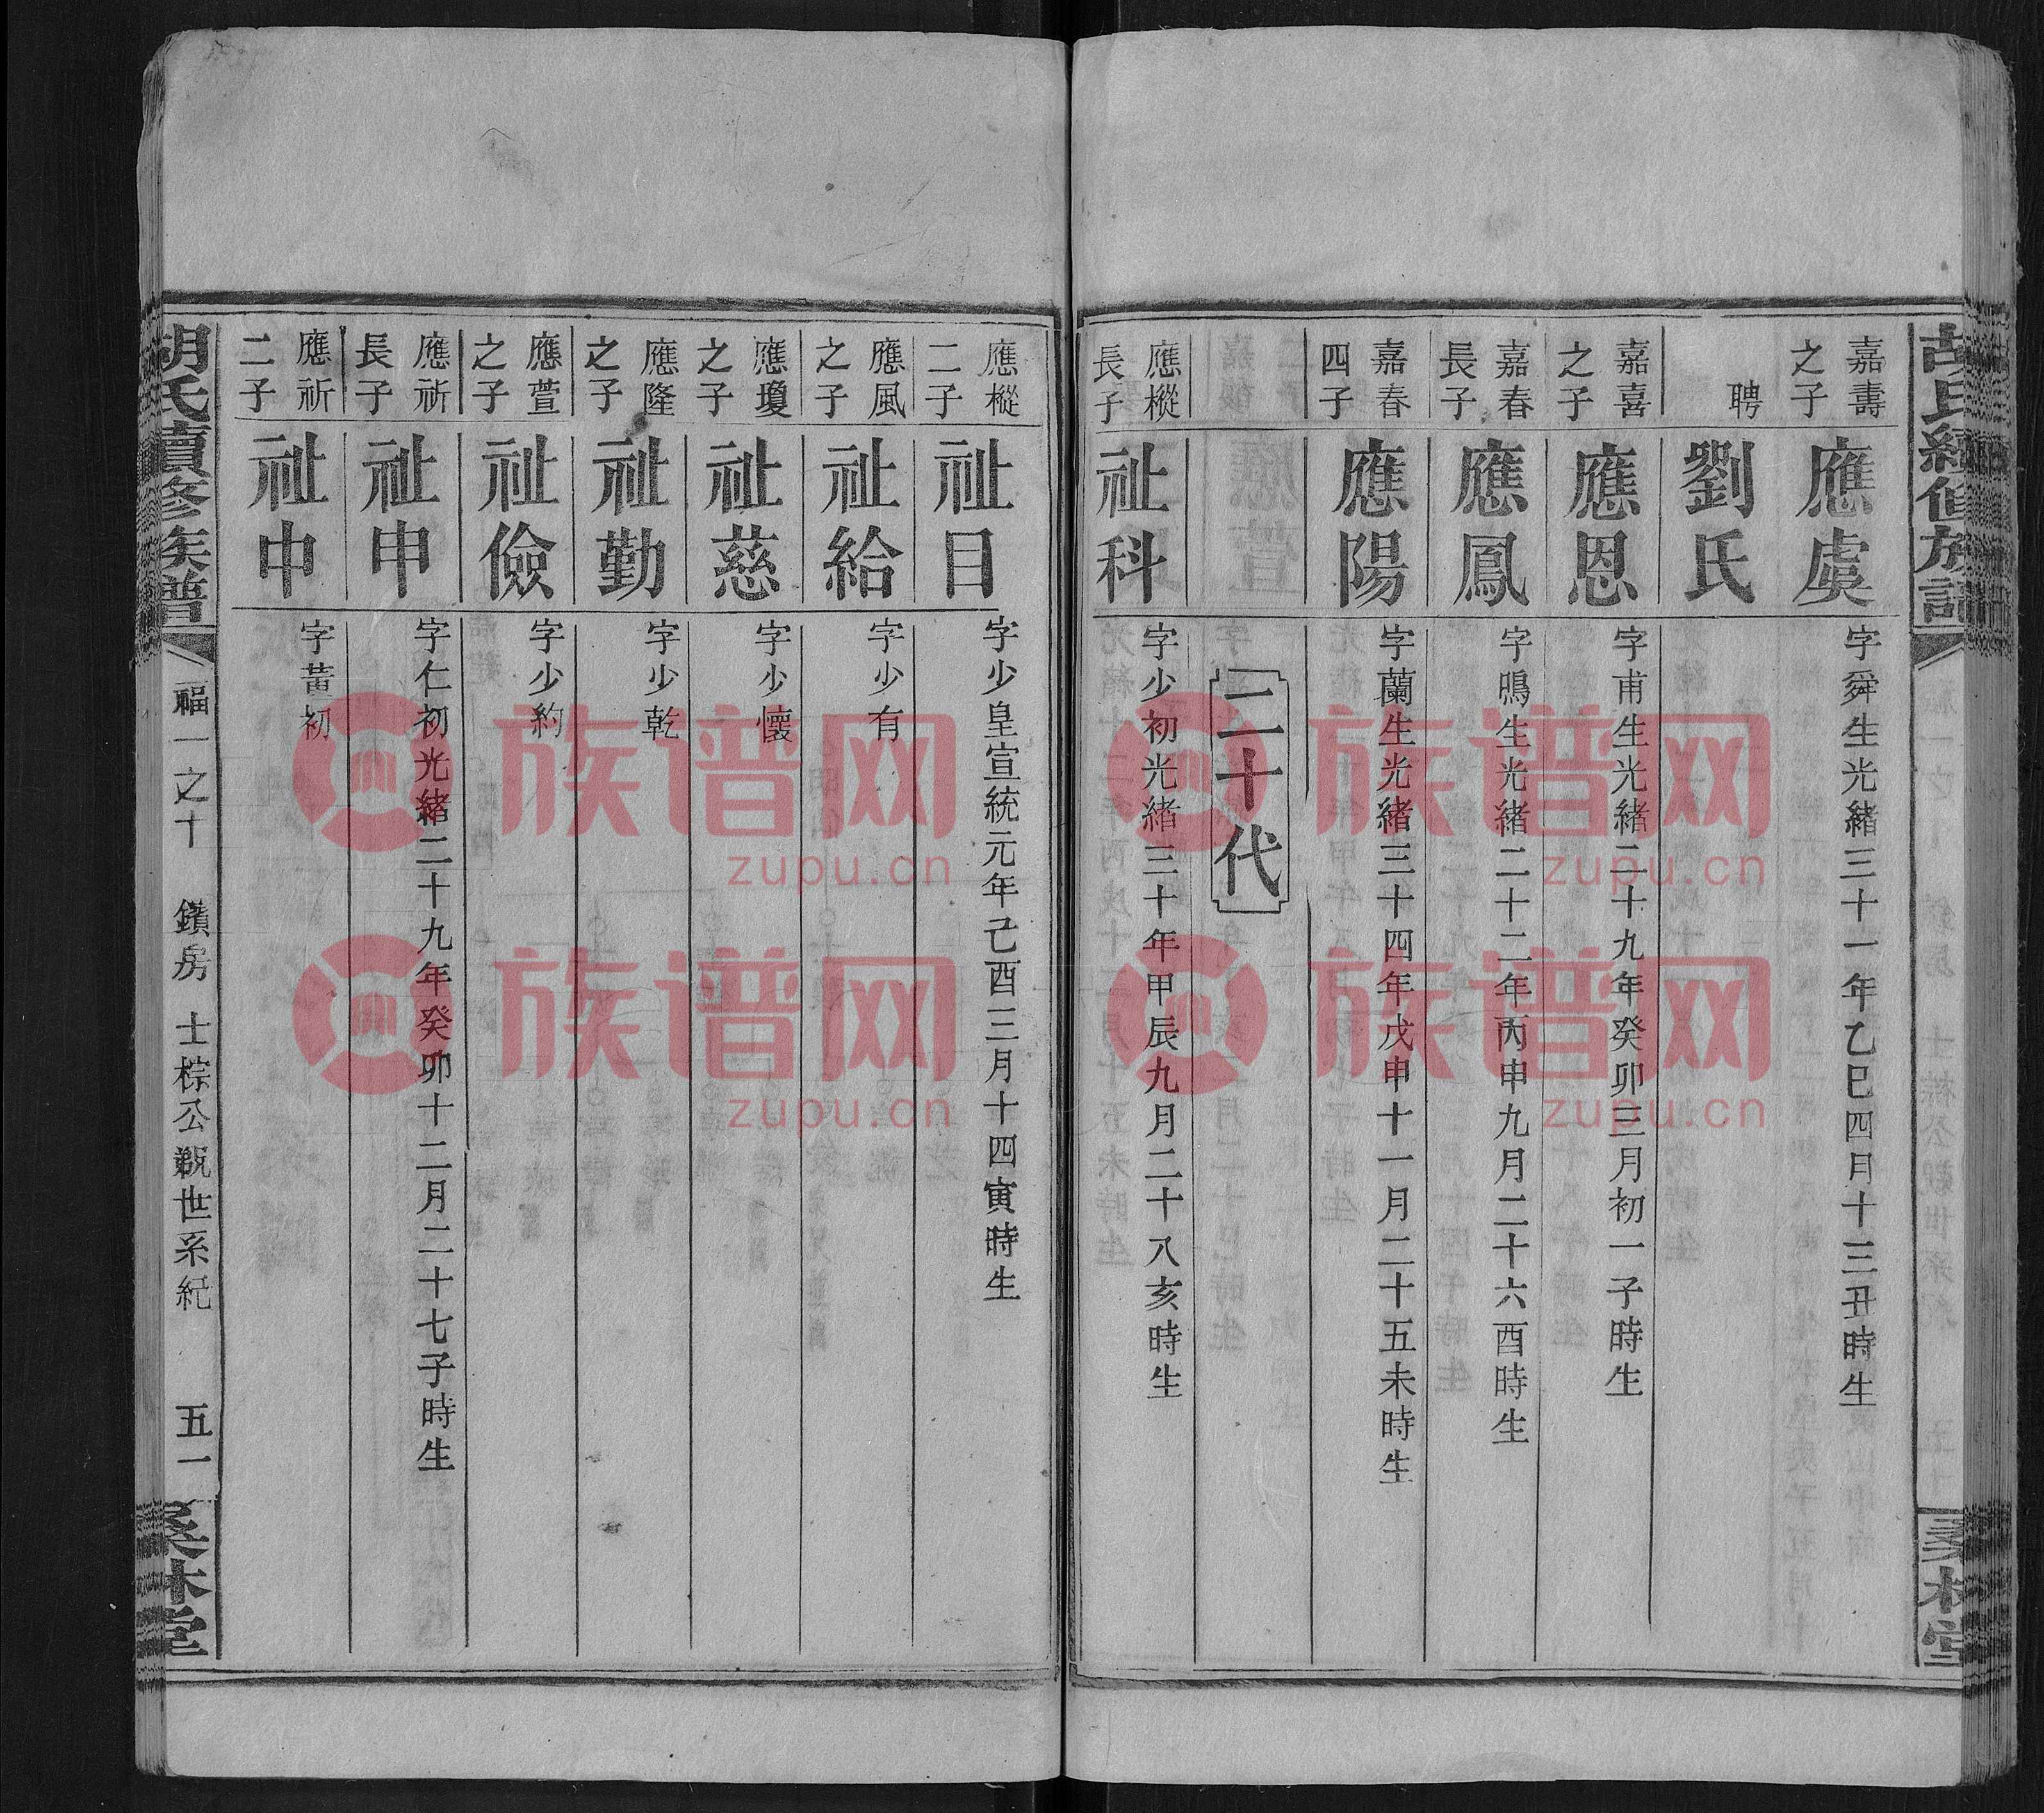 胡氏續修族譜
嘉壽之子
應虞
字舜生光緒三十一年乙巳四月十三丑時生
聘
劉氏
嘉喜之子
應恩
字甫生光緒二十九年癸卯三月初一子時生
嘉春長子
應鳳
字鳴生光緒二十二年丙申九月二十六酉時生
嘉春四子
應陽
字蘭生光緒三十四年戊申十一月二十五未時生
二十代
應樅長子
祉科
字少初光緒三十年甲辰九月二十八亥時生
應樅二子
祉目
字少皇宣統元年己酉三月十四寅時生
應風之子
祉給
字少有
應瓊之子
祉慈
字少懷
應隆之子
祉勤
字少乾
應萱之子
祉儉
字少約
應祈長子
祉申
字仁初光緒二十九年癸卯十二月二十七子時生
應祈二子
祉中
字黃初
胡氏續修族譜
福一之十 鑽房 士棕公親世系紀 五一
林堂
族谱网
zupu.cn
族谱网
zupu.cn
族谱网
zupu.cn
族谱网
zupu.cn